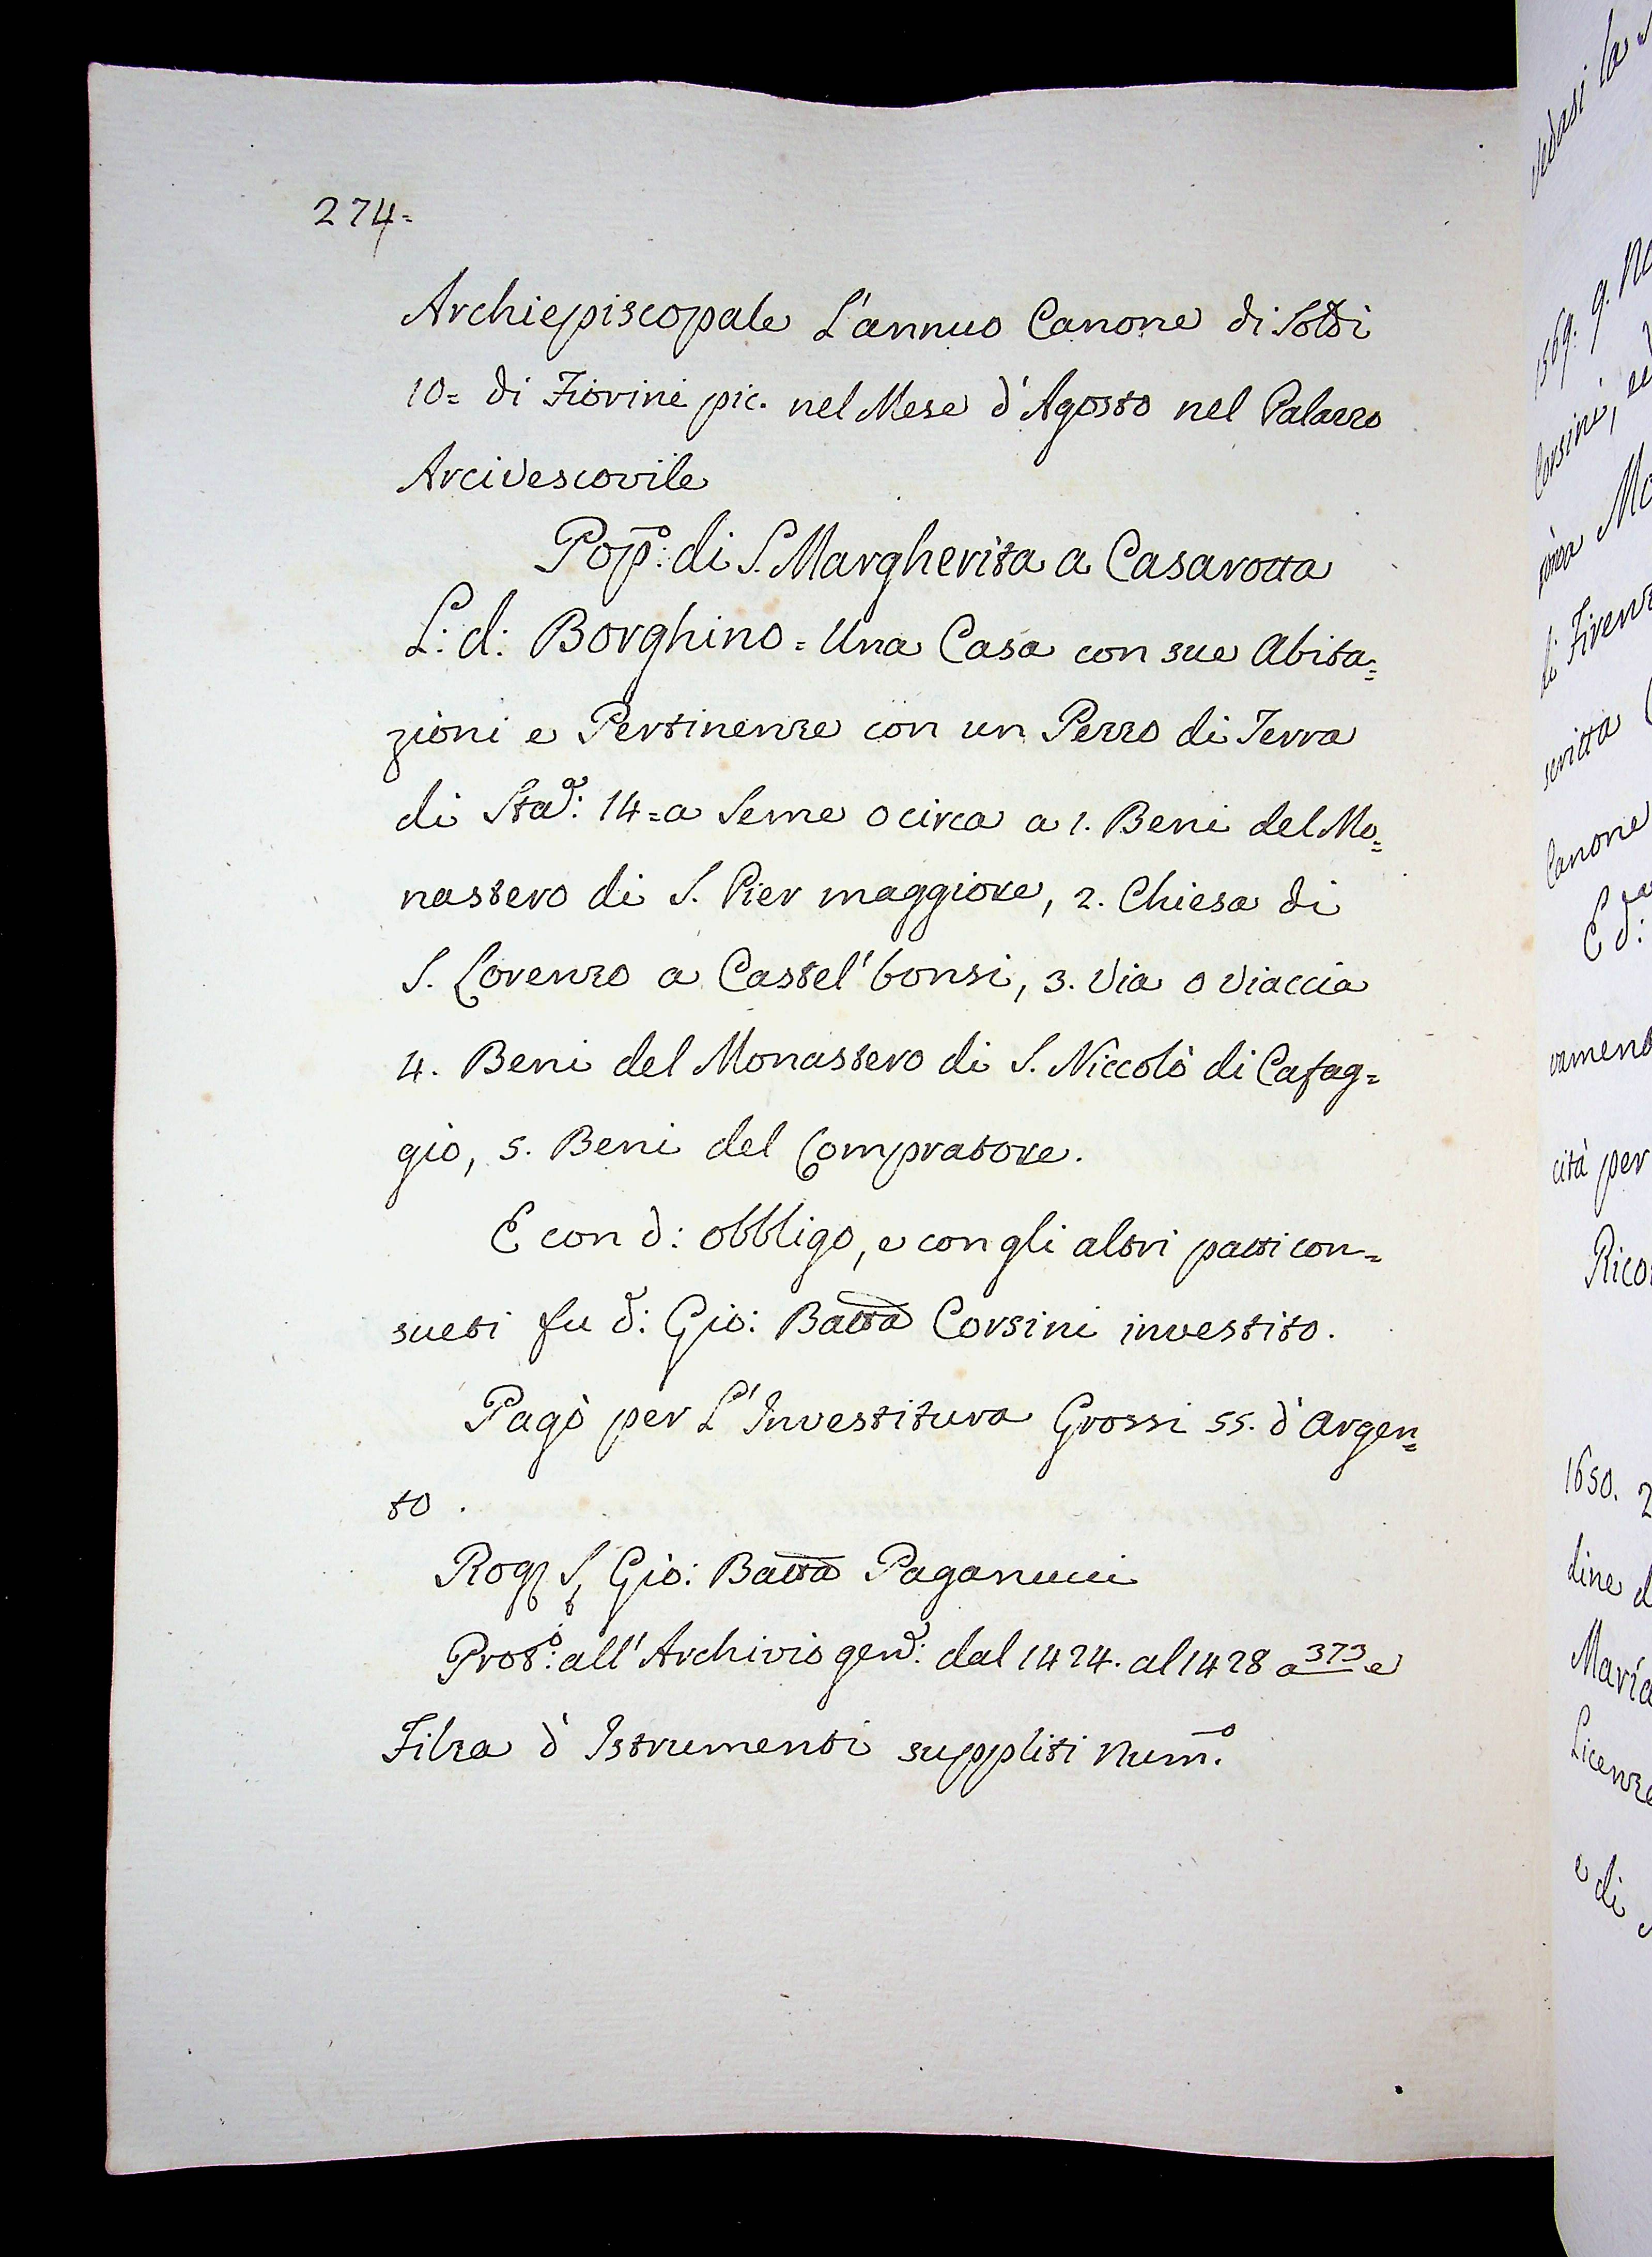 274=
Archiepiscopale L'annuo Canone di Soldi
10= di Fiorini pic. nel Mese d'Agosto nel Palazzo
Arcivescovile
Pop:º di S. Margherita a Casarotta
L: d: Borghino = Una Casa con sue Abita=
zioni e Pertinenze con un Pezzo di Terra
di Stad:ª 14= a Seme o circa a 1. Beni del Mo=
nastero di S. Pier maggiore, 2. Chiesa di
S. Lorenzo a Castel'bonsi, 3. Via o Viaccia
4. Beni del Monastero di S. Niccolò di Cafag=
gio, 5. Beni del Compratore.
E con d: obbligo, e con gli altri patti con=
sueti fu d:º Gio: Batta Corsini investito.
Pagò per L'Investitura Grossi 55. d'Argen=
to.
Rog S Gio: Batta Paganucci
Prot:º all'Archivio gen: dal 1424. al 1428 a 373 e
Filza d'Istrumenti suppliti Num.º
vedasi la
1569. 9.
Corsini,
di Firenz
scritta
Canone
E d:
cità per
1650. 2
dine d
Maria
Licenze
e di